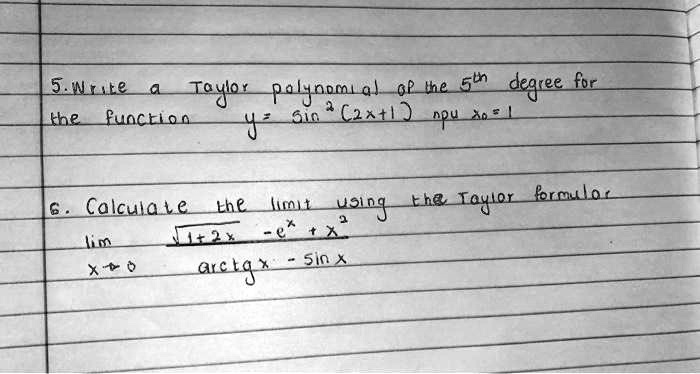 5. Write a Taylor polynomial of the 5th degree for
the function y = sin² (2x+1) при x₀ = 1
6. Calculate the limit using the Taylor formular
lim √(1+2x) - eˣ + x²
x→0 arctgx - sin x